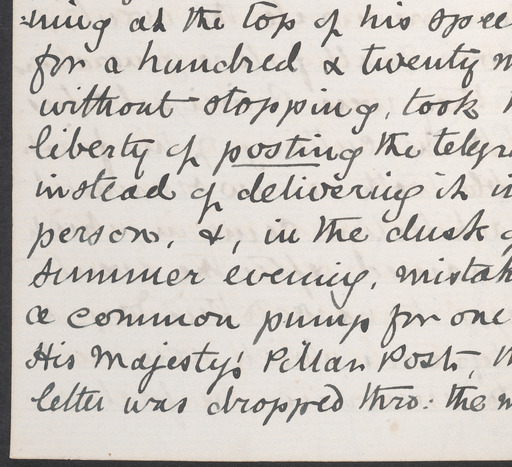 :ning at the top of his spee
for a hundred & twenty m
without stopping, took t
liberty of posting the telegr
instead of delivering it in
person, &, in the dusk o
summer evening, mistak
a common pump for one
His Majesty's Pillar Post, th
letter was dropped thro: the m